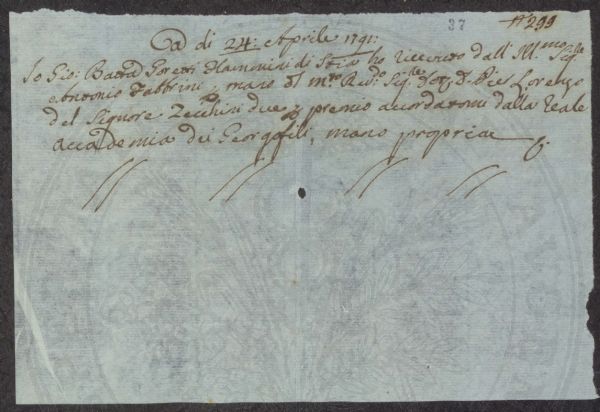 37
N 299
A di 24: Aprile 1791:
Io Gio: Batta Goretti Flaminini di Stia ho ricevuto dall Ill.mo Sig.re
Antonio Fabbrini p mano del m.to Rev.do Sig.re D. Pier Lorenzo
del Signore Zecchini due p premio accordatomi dalla Reale
Accademia dei Georgofili, mano propria